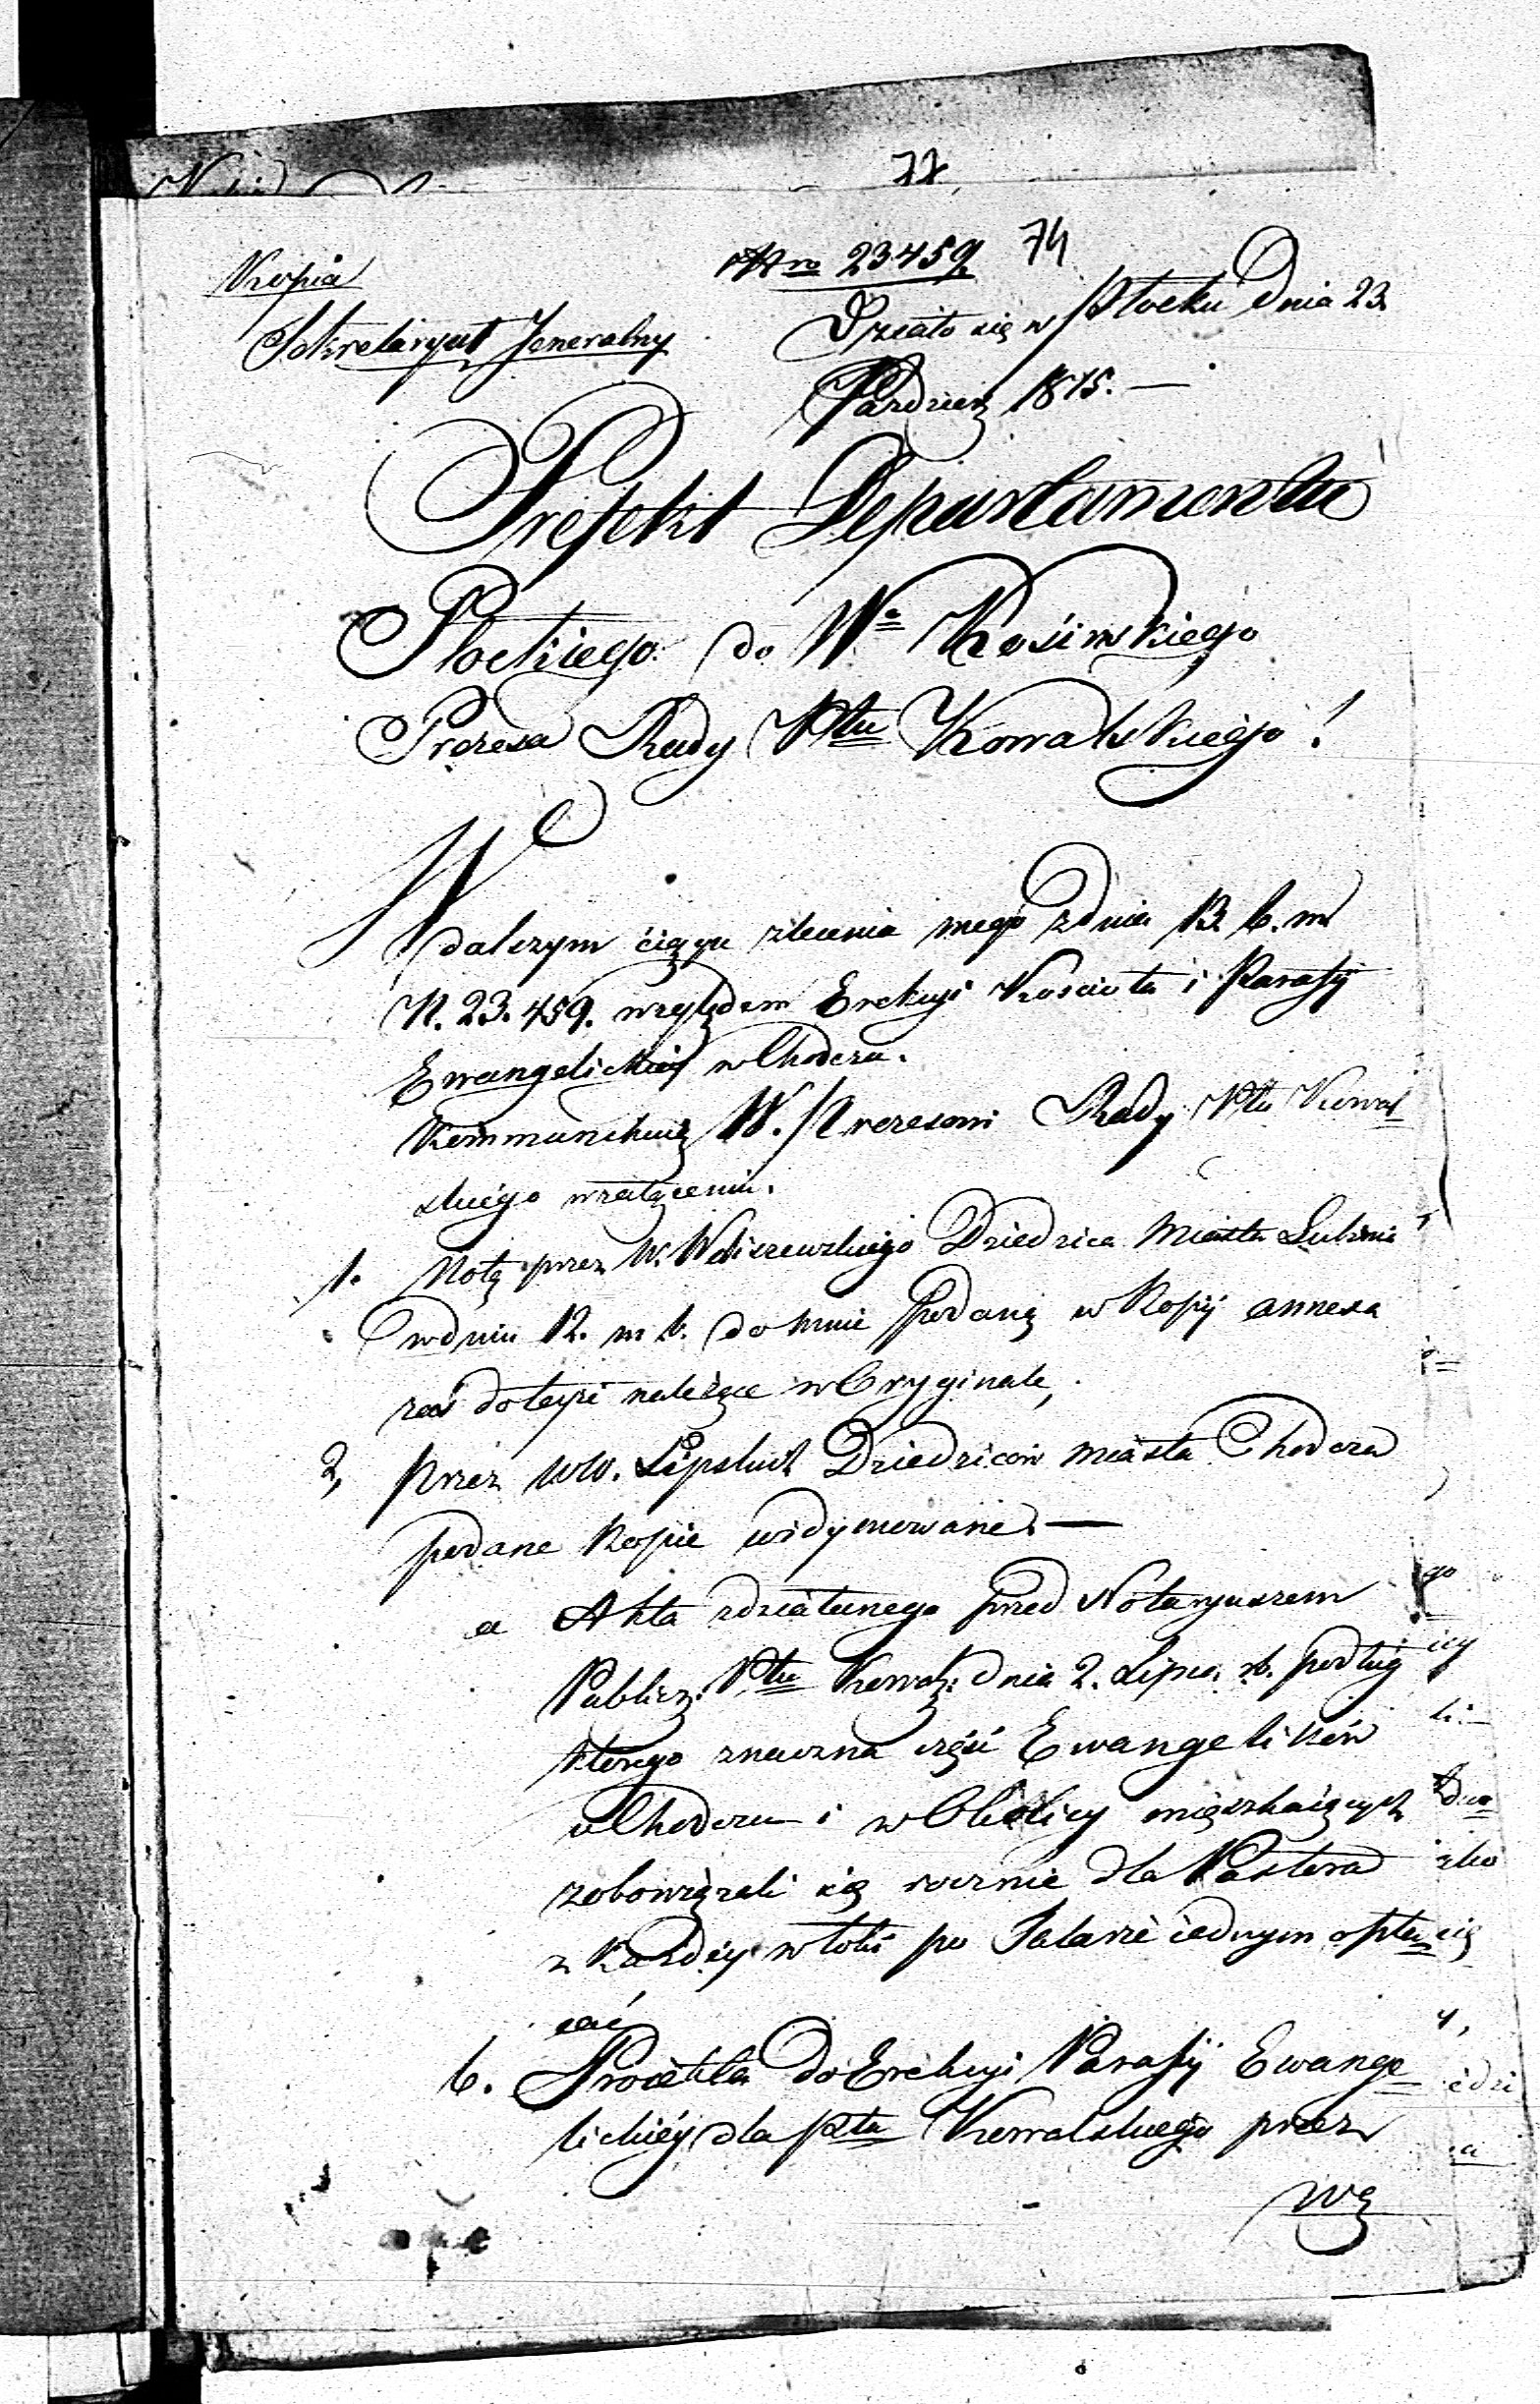 77
74
Kopia
Nro 23459
Sekretaryat Jeneralny
Działo się w Płocku Dnia 23
Paździer 1815. —
Prefekt Departamentu
Płockiego do Wo Kosińskiego
Prezesa Rady Pttu Kowalskiego!
W dalszym ciągu zlecenia mego z dnia 13 b. m
N. 23.459. względem Erekcyi Kościoła i Parafij
Ewangelickiey w Chodczu.
Kommunikuię W. Prezesowi Rady Pttu Kowal
skiego w załączeniu.
1. Notę przez W. Dziedzica Miasta Lubinia
w dniu 12. m b. do mnie podaną w Kopij annexa
zaś do teyże należące w Oryginale,
2, przez WW. Lipskich Dziedziców miasta Chodcza
podane Kopie widymowane. —
a Akta zdziałanego przed Notaryuszem
Publicz. Pttu Kowal: dnia 2. Lipca rb. podług
którego znaczna część Ewangelików
w Chodczu i w Okolicy mięszkaiących
zobowiązali się rocznie dla Pastora
z każdey włoki po Talarze iednym opła
cać
b. Proiekta do Erekcyi Parafij Ewange
lickiéy dla Pttu Kowalskiego przez